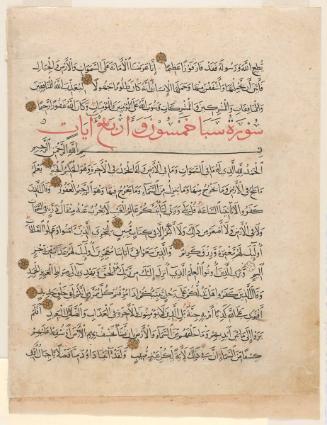 يطع الله ورسوله فقد فاز فوزا عظيما انا عرضنا الامانة على السموات والارض والجبال
فابين ان يحملنها واشفقن منها وحملها الانسان انه كان ظلوما جهولا ليعذب الله المنافقين
والمنافقات والمشركين والمشركات ويتوب الله على المؤمنين والمؤمنات وكان الله غفورا رحيما
سورة سبا خمسون واربع ايات
بسم الله الرحمن الرحيم
الحمد لله الذي له ما في السموات وما في الارض وله الحمد في الاخرة وهو الحكيم الخبير يعلم
ما يلج في الارض وما يخرج منها وما ينزل من السماء وما يعرج فيها وهو الرحيم الغفور وقال الذين
كفروا لا تاتينا الساعة قل بلى وربي لتاتينكم عالم الغيب لا يعزب عنه مثقال ذرة في السموات
ولا في الارض ولا اصغر من ذلك ولا اكبر الا في كتاب مبين ليجزي الذين امنوا وعملوا الصالحات
اولئك لهم مغفرة ورزق كريم والذين سعوا في اياتنا معاجزين اولئك لهم عذاب من رجز
اليم ويرى الذين اوتوا العلم الذي انزل اليك من ربك هو الحق ويهدي الى صراط العزيز الحميد
وقال الذين كفروا هل ندلكم على رجل ينبئكم اذا مزقتم كل ممزق انكم لفي خلق جديد
افترى على الله كذبا ام به جنة بل الذين لا يؤمنون بالاخرة في العذاب والضلال البعيد افلم
يروا الى ما بين ايديهم وما خلفهم من السماء والارض ان نشا نخسف بهم الارض او نسقط عليهم
كسفا من السماء ان في ذلك لاية لكل عبد منيب ولقد اتينا داود منا فضلا يا جبال اوبي